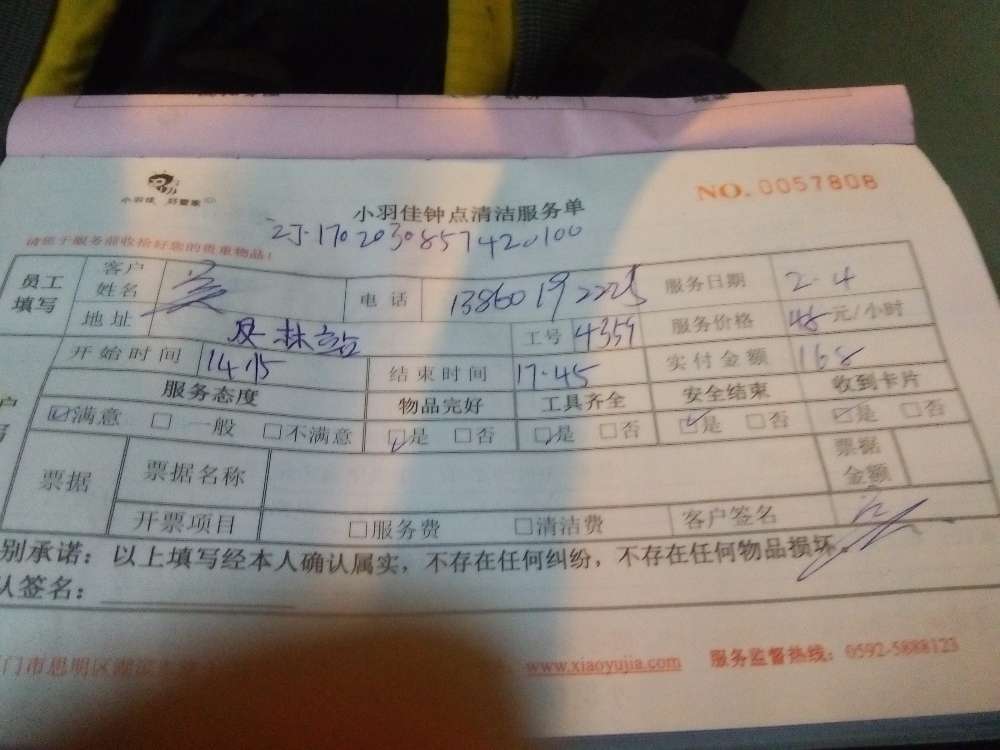 小羽佳 好管家
NO. 0057808
小羽佳钟点清洁服务单
1702030857420100
请您于服务前收拾好您的贵重物品！
员工填写 客户姓名 电话 服务日期 2.4
地址 林站 工号 4359 服务价格 48 元/小时
开始时间 14.15 结束时间 17.45 实付金额 168
服务态度 物品完好 工具齐全 安全结束 收到卡片
☑满意 □一般 □不满意 ☑是 □否 ☑是 □否 ☑是 □否 ☑是 □否
票据 票据名称 票据金额
开票项目 □服务费 □清洁费 客户签名
别承诺：以上填写经本人确认属实，不存在任何纠纷，不存在任何物品损坏。
认签名：
门市思明区湖滨 www.xiaoyujia.com 服务监督热线：0592-5888123